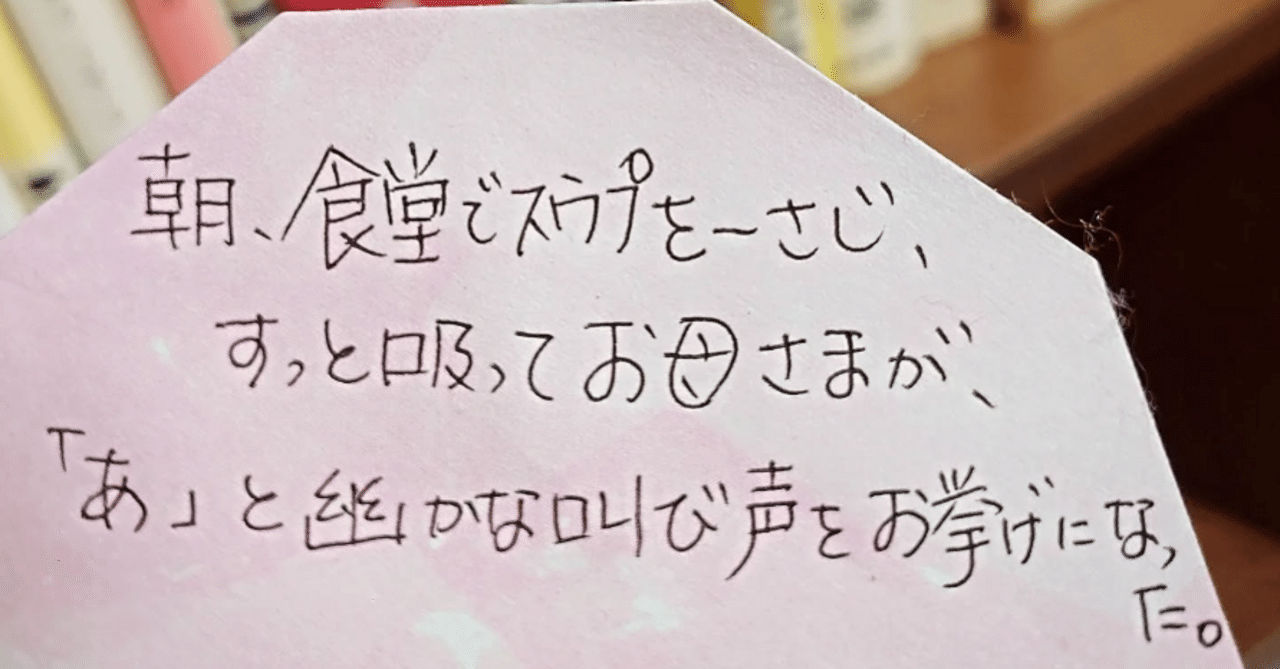 朝、食堂でスウプを一さじ、
すっと吸ってお母さまが、
「あ」と幽かな叫び声をお挙げになっ
た。